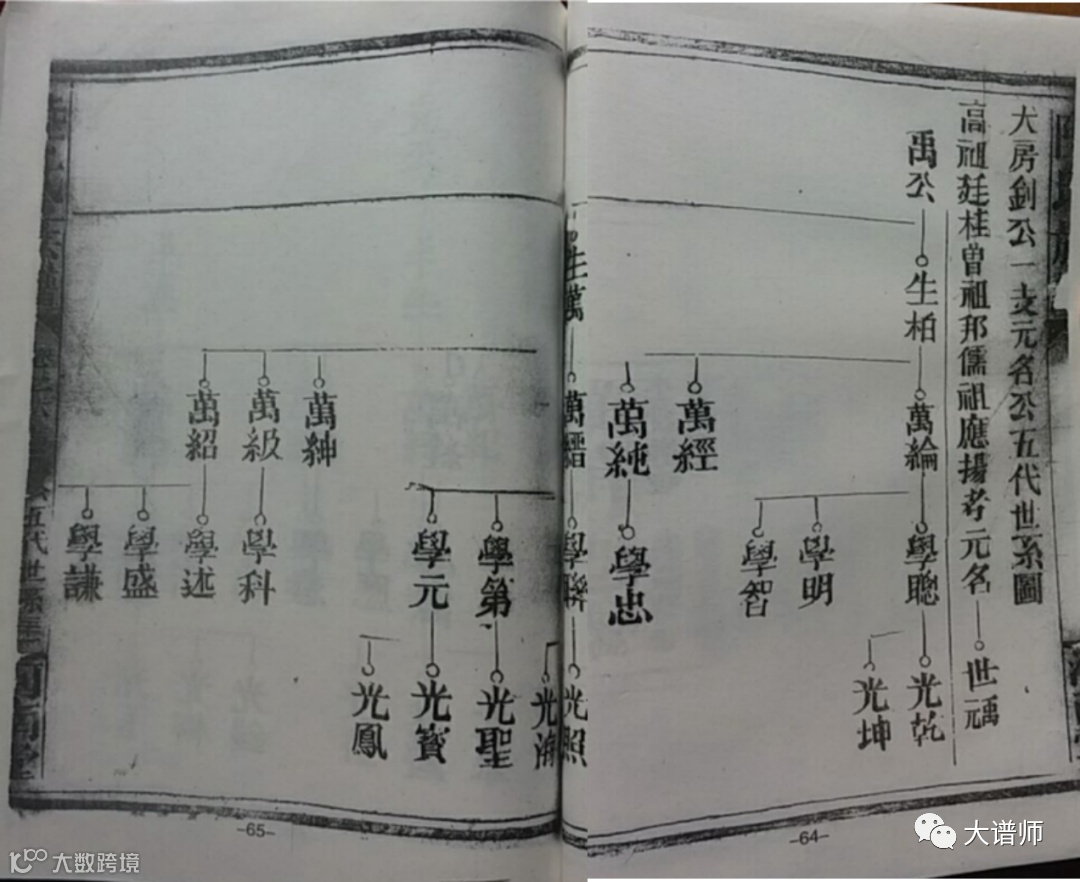 大房釗公一支元名公五代世系圖
高祖廷桂曾祖邦儒祖應揚考元名
世禹
禹公
生柏
萬綸
學聰
光乾
光坤
學明
學智
萬經
萬純
學忠
生萬
學聯
光照
學第
光聖
學元
光寶
光鳳
萬紳
萬級
學科
萬紹
學述
學盛
學謙
五代世系
-64-
-65-
大谱师
大数跨境